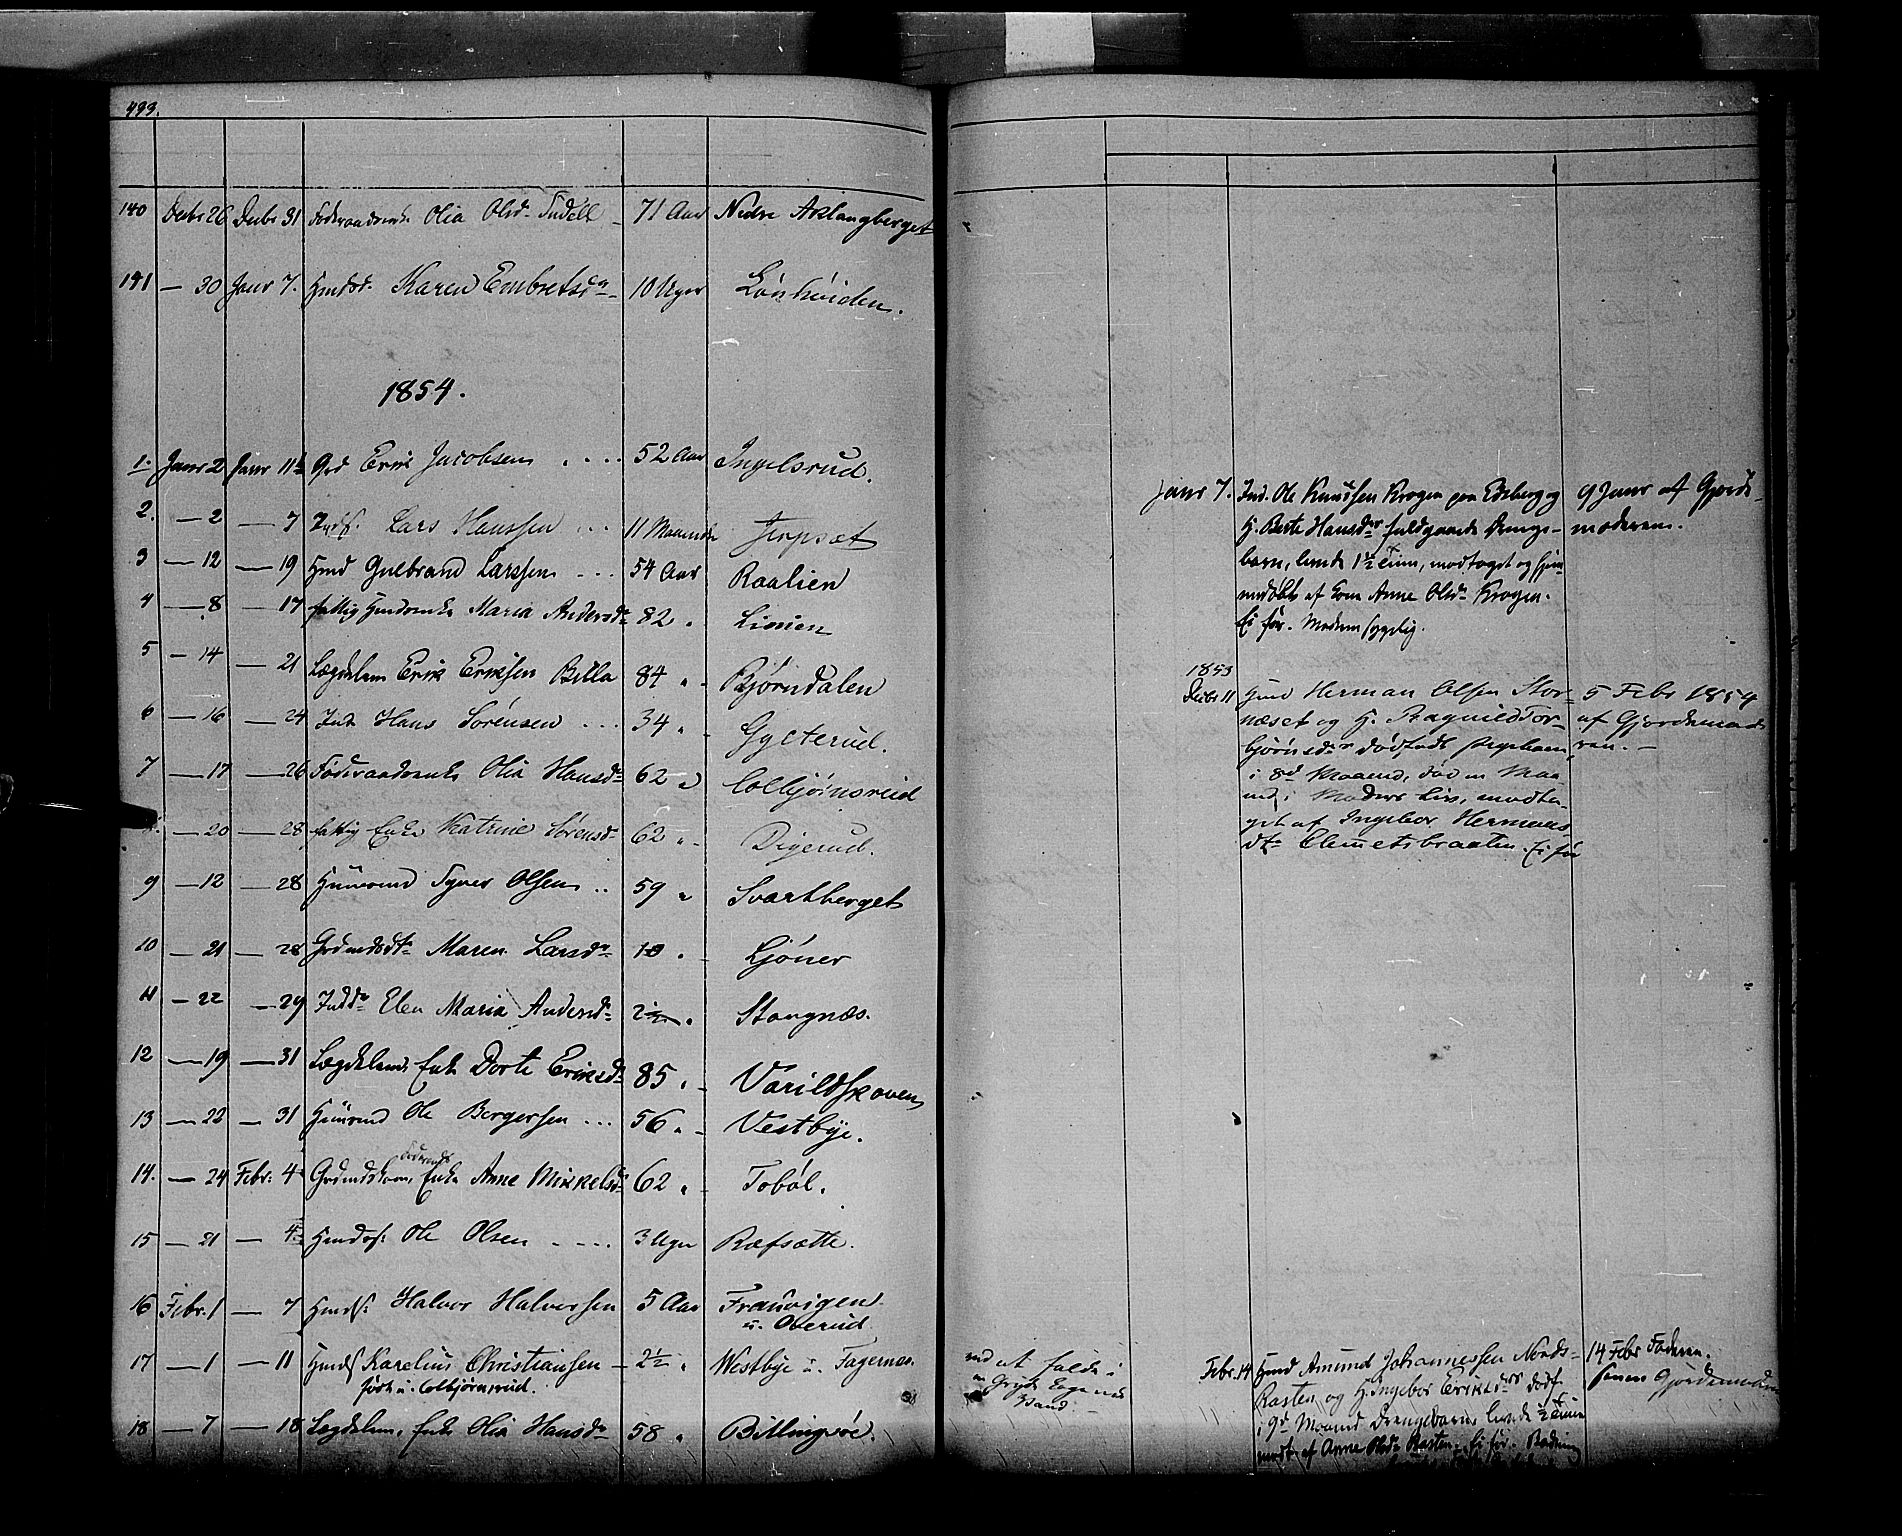 499.
140 Decbr 26 Decbr 31 Føderaadsenke Olia Olsd. Tudell 71 Aar Nedre Aslangberget
141 — 30 Janr 7. Hmdsd. Karen Embretsdr 10 Uger Lønhøiden.
1854.
1. Janr 2 Janr 11 Grd Erik Jacobsen .... 52 Aar Ingelsrud.
2. — 2 — 7 Inds. Lars Hanssen ... 11 Maaneder Jerpsæt
3 — 12 — 19 Hmd Gulbrand Larssen ... 54 Aar Raalien
4 — 8 — 17 fattig Hmdsenke Maria Andersdr 82 " Linien
5 — 14 — 21 Lægdslem Erik Eriksen Billa 84 " Bjørndalen
6 — 16 — 24 Ind. Hans Sørensen ... 34 " Gycterud.
7 — 17 — 26 Føderaadsenke Olia Hansdr 62 " Colbjørnsrud
8. — 20 — 28 fattig Enke Katrine Sørensd 62 " Digerud.
9 — 12 — 28 Huusmd Syver Olsen .. 59 " Svartberget
10 — 21 — 28 Grdmdsdtr Maren Larsdr 10 " Gjøner
11 — 22 — 29 Indsdr Elen Maria Andersdr 2½ " Stangnæs.
12 — 19 — 31 Lægdslem, Enke Dorte Eriksdr 85 " Varildskoven
13 — 22 — 31 Huusmd Ole Bergersen ... 56 " Vestbye.
14. — 24 Febr: 4 Grdmdskone, Enke Anne Mikkelsdr 62 " Tobøl.
15 — 21 — 4 Hmdss: Ole Olsen .... 3 Uger Ræfsætte.
16 Febr. 1 — 7 Hmds: Halvor Halvorsen 5 Aar Frauvigen
u. Overud
17 — 1 — 11 Hmds Karelius Christiansen — 2½ " Westbye u. Fagernes.
født u. Colbjørnsrud.
18 — 7 — 18 Lægdslem, Enke Olia Hansdr 58 " Billingsøe.
ved at falde i
en Gryde Kogende
Vand.
Janr 7. Ind. Ole Knudsen Krogen paa Edsberg og
H. Berte Hansdr fuldgaaede Drenge-
barn, levede 1½ Time, modtaget og hjem-
medøbt af Kone Anne Olsdr Krogen.
Ei før. Modern sygelig.
9 Janr af Gjorde-
moderen.
1853
Decbr 11 Hmd Herman Olsen Stor-
næset og H. Ragnild Tor-
bjørnsdr dødfødt Pigebarn
i 8d Maaned, død en Maa-
ned i Moders Liv, modta-
get af Ingebor Hermans-
dtr Clemetsbraaten. Ei før
5 Febr 1854
af Gjordemode-
ren. —
Febr. 14 Hmd Amund Johannessen Nords-
Rasten og H. Ingebor Eriksdr dødf.
i 9d Maaned Drengebarn, levede ½ Time
modt. af Anne Olsdr Rasten. Ei før.
14 Febr Faderen.
senere Gjordemoderen